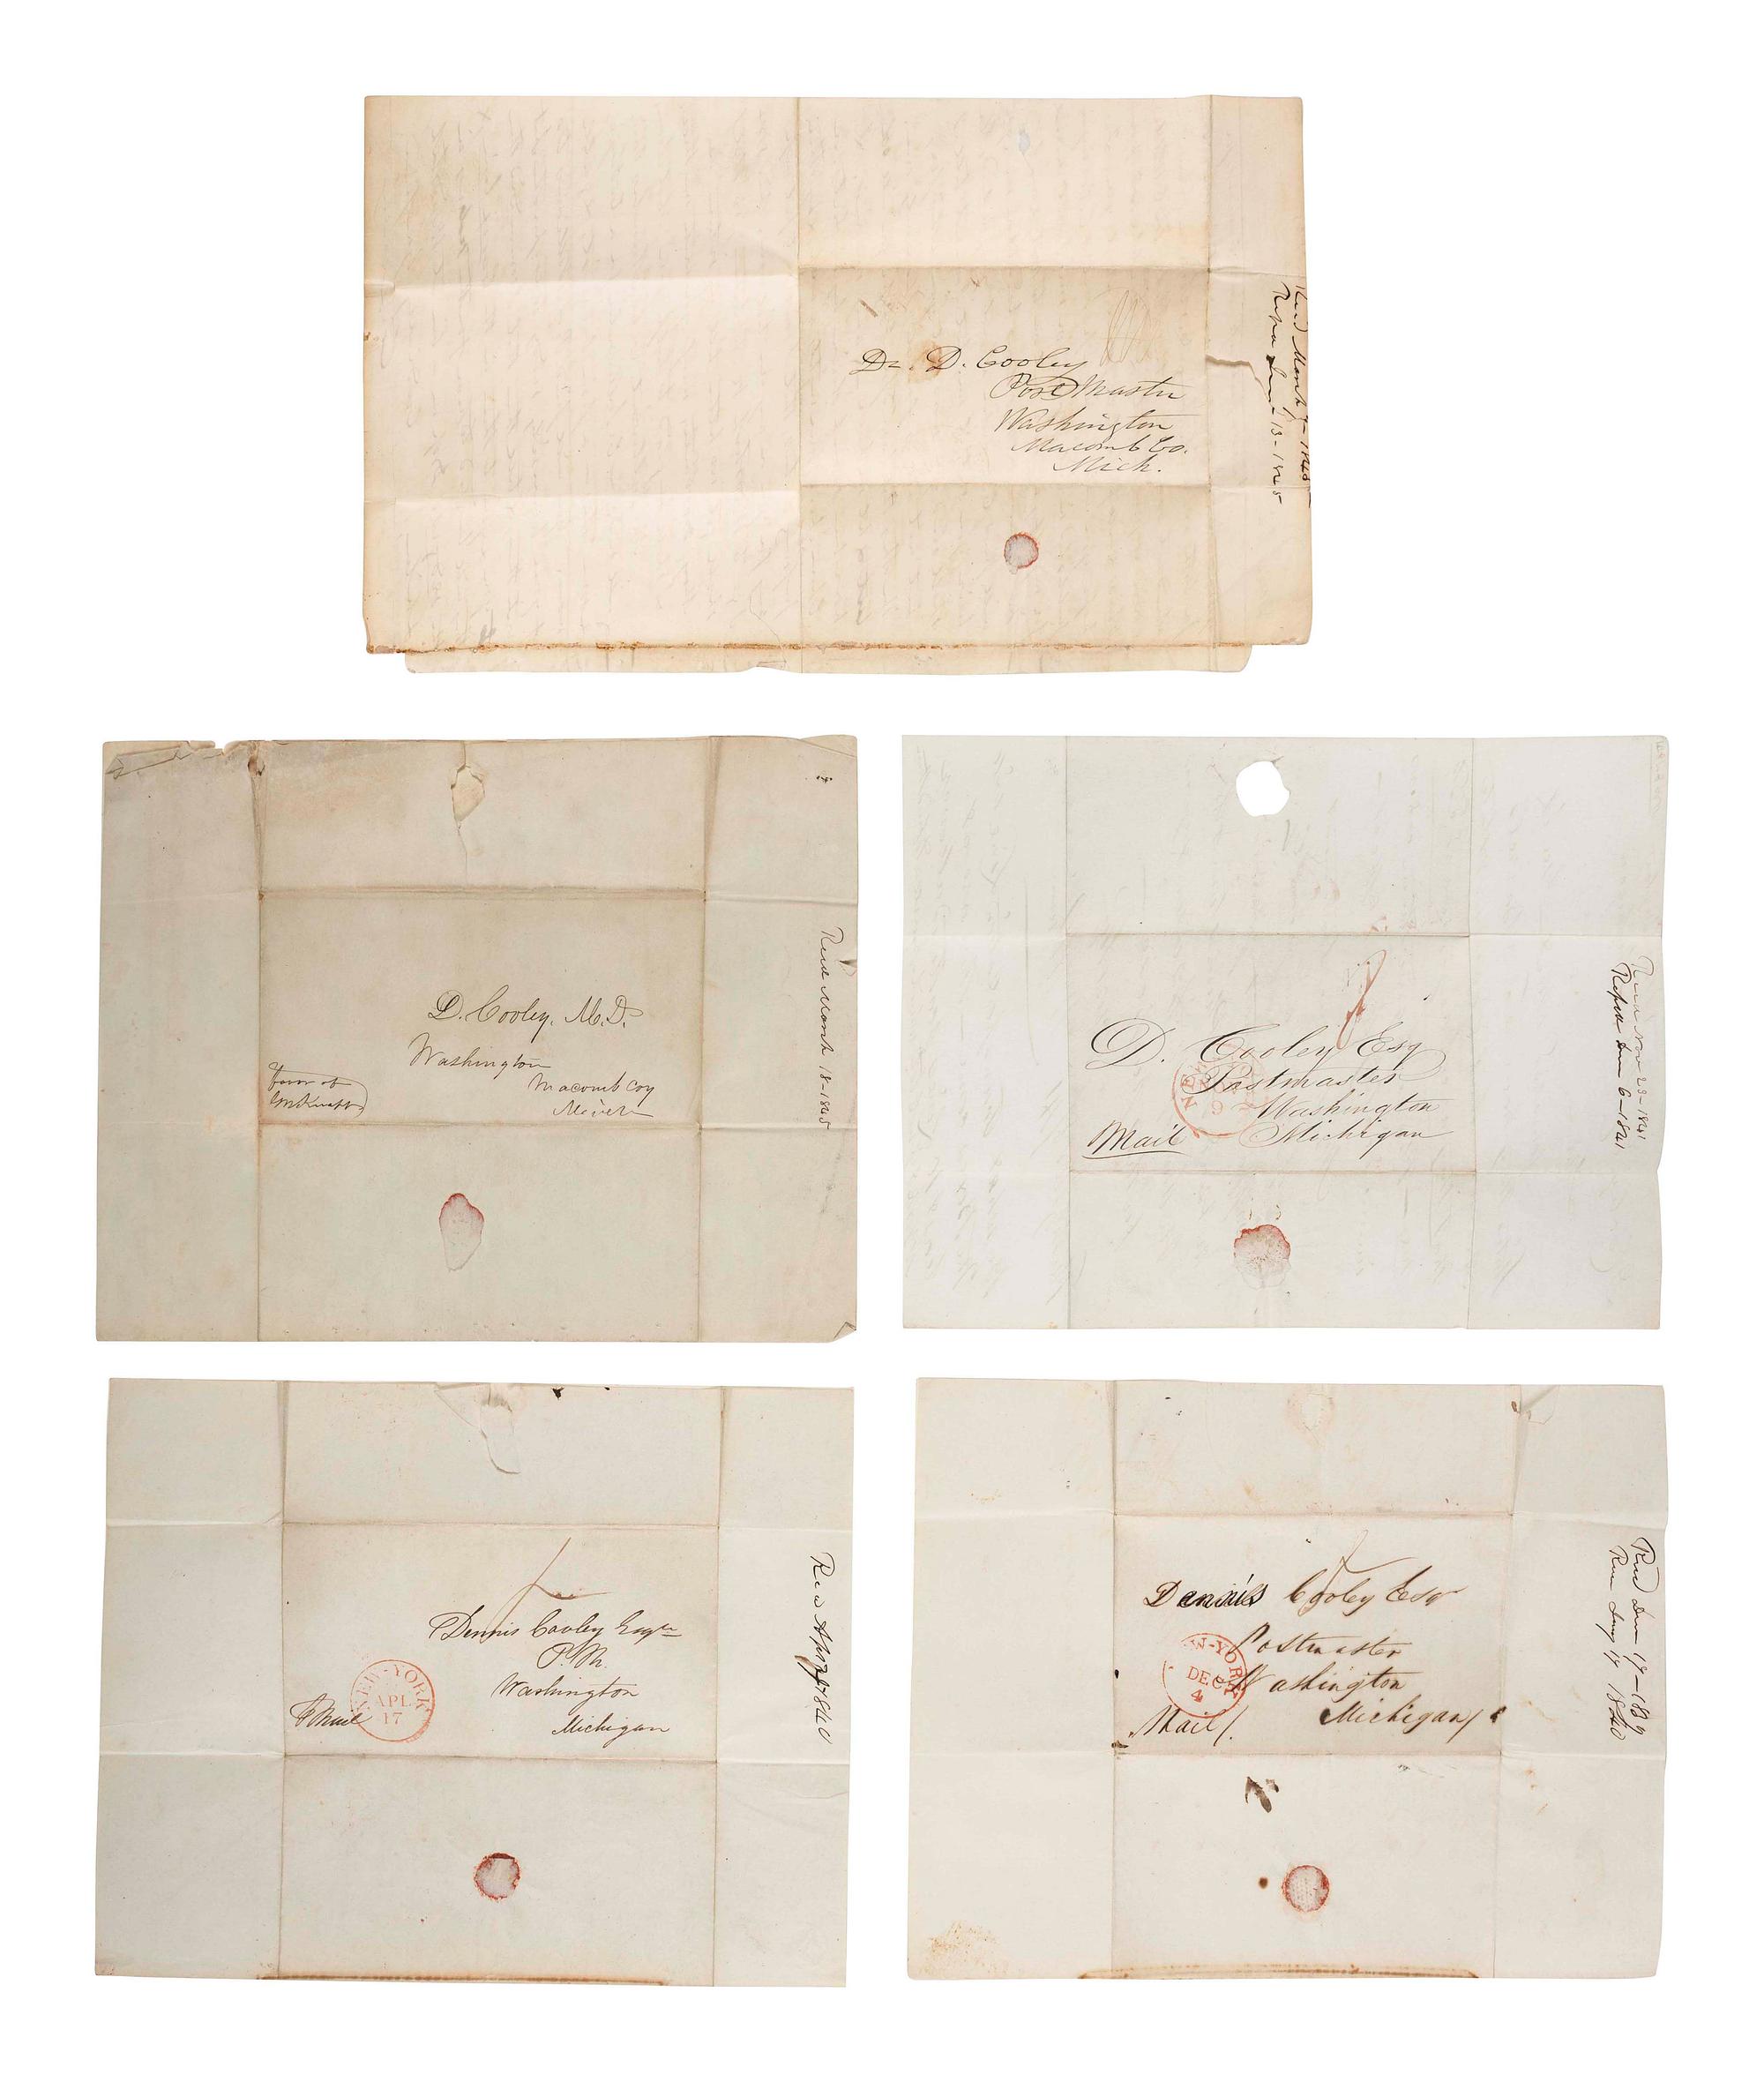 Dr. D. Cooley
Post Master
Washington
Macomb Co.
Mich.
Recd March 1845
13 - 1845
D. Cooley, M.D.
Washington
Macomb Coy
Favor of
Recd March 18 - 1845
D. Cooley Esq
Postmaster
Washington
Michigan
Mail
NEW
Recd Nov 23 - 1841
6 - 1841
Dennis Cooley Esqre
P. M.
Washington
Michigan
Mail
NEW-YORK
APL
17
1840
Dennis Cooley Esq
Postmaster
Washington
Michigan
Mail
W-YORK
DEC
4
Recd 17 - 1839
1840